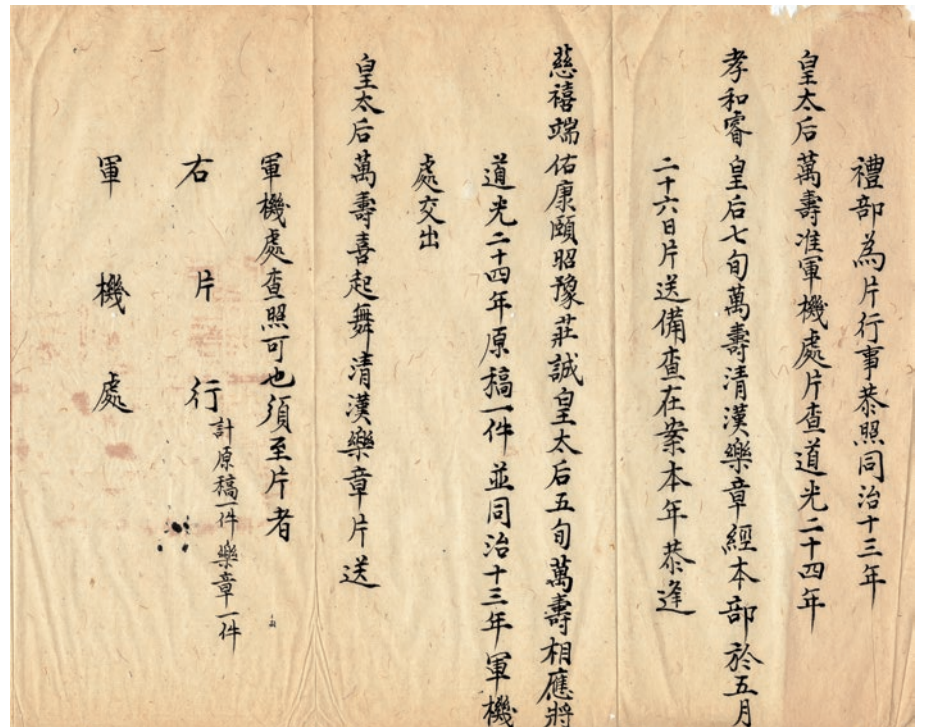 禮部為片行事恭照同治十三年
皇太后萬壽准軍機處片查道光二十四年
孝和睿皇后七旬萬壽清漢樂章經本部於五月
二十六日片送備查在案本年恭逢
慈禧端佑康頤昭豫莊誠皇太后五旬萬壽相應將
道光二十四年原稿一件並同治十三年軍機
處交出
皇太后萬壽喜起舞清漢樂章片送
軍機處查照可也須至片者
右片行
計原稿一件樂章一件
軍機處